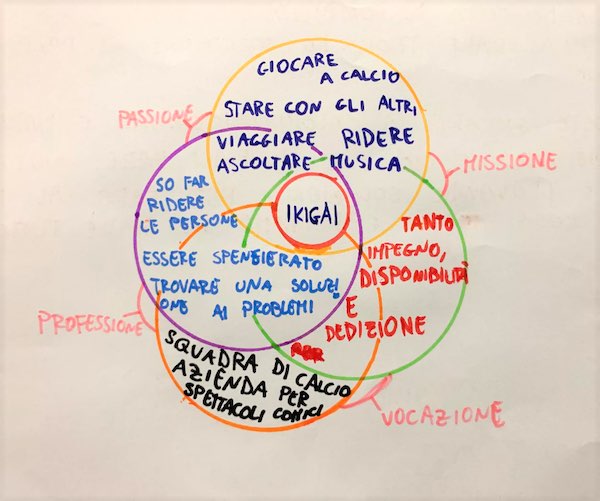 GIOCARE
A CALCIO
STARE CON GLI ALTRI
VIAGGIARE RIDERE
ASCOLTARE MUSICA
PASSIONE
MISSIONE
SO FAR
RIDERE
LE PERSONE
ESSERE SPENSIERATO
TROVARE UNA SOLUZI
ONE AI PROBLEMI
IKIGAI
TANTO
IMPEGNO,
DISPONIBILITÀ
E
DEDIZIONE
PROFESSIONE
SQUADRA DI CALCIO
AZIENDA PER
SPETTACOLI COMICI
VOCAZIONE